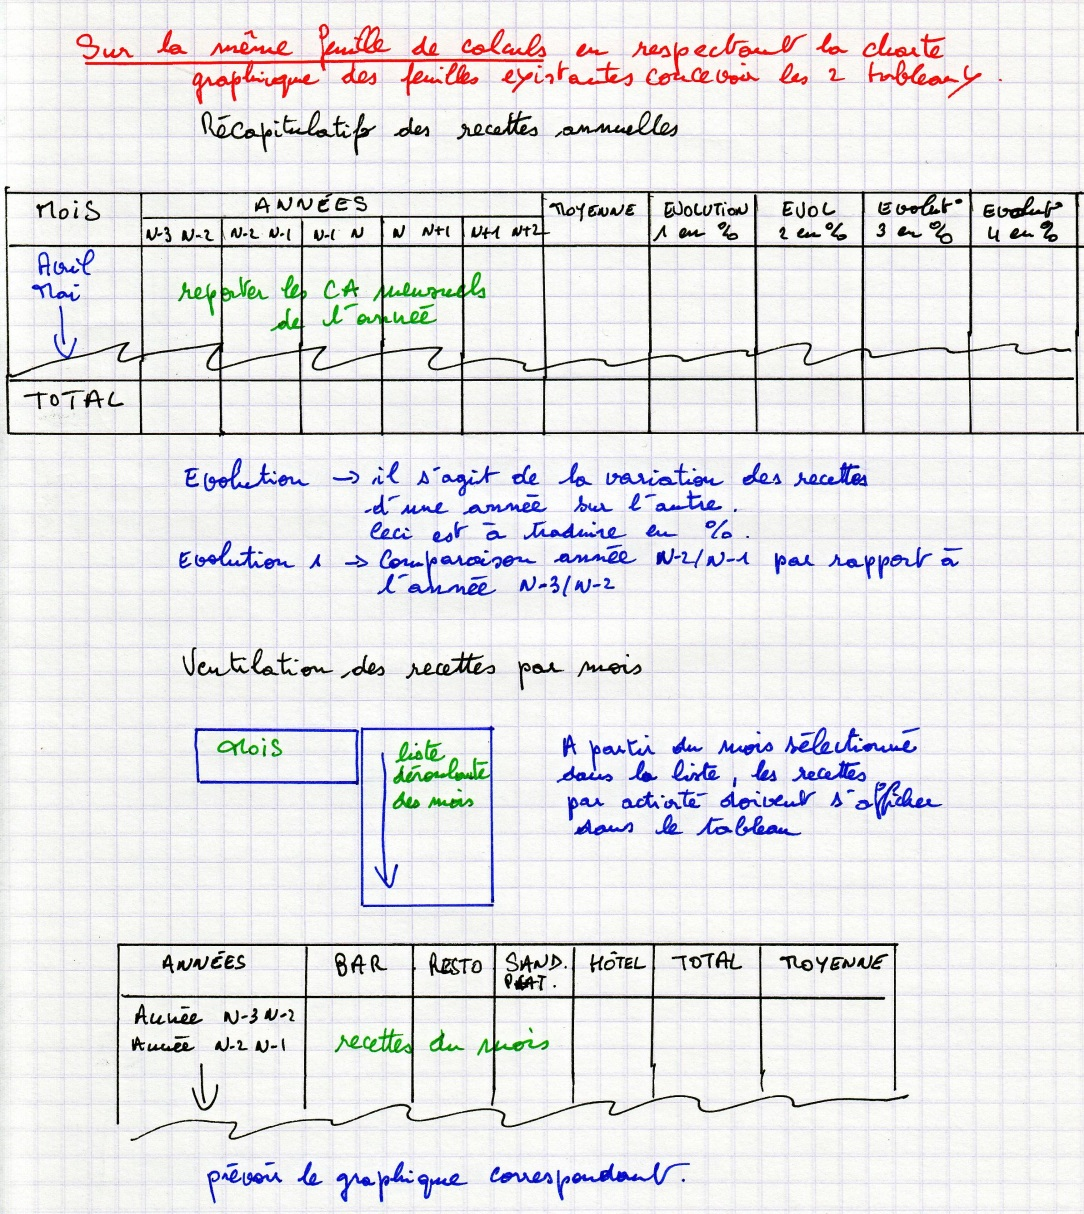 Sur la même feuille de calculs en respectant la charte
graphique des feuilles existantes concevoir les 2 tableaux.
Récapitulatif des recettes annuelles
MOIS ANNÉES MOYENNE EVOLUTION EVOL Evolut° Evolut°
N-3 N-2 N-2 N-1 N-1 N N N+1 N+1 N+2 1 en % 2 en % 3 en % 4 en %
Avril
Mai
reporter les CA mensuels
de l'année
TOTAL
Evolution → il s'agit de la variation des recettes
d'une année sur l'autre.
Ceci est à traduire en %.
Evolution 1 → Comparaison année N-2/N-1 par rapport à
l'année N-3/N-2
Ventilation des recettes par mois
MOIS
liste
déroulante
des mois
A partir du mois sélectionné
dans la liste, les recettes
par activité doivent s'afficher
dans le tableau
ANNÉES BAR RESTO SAND. HÔTEL TOTAL MOYENNE
PLAT.
Année N-3 N-2
Année N-2 N-1
recettes du mois
prévoir le graphique correspondant.